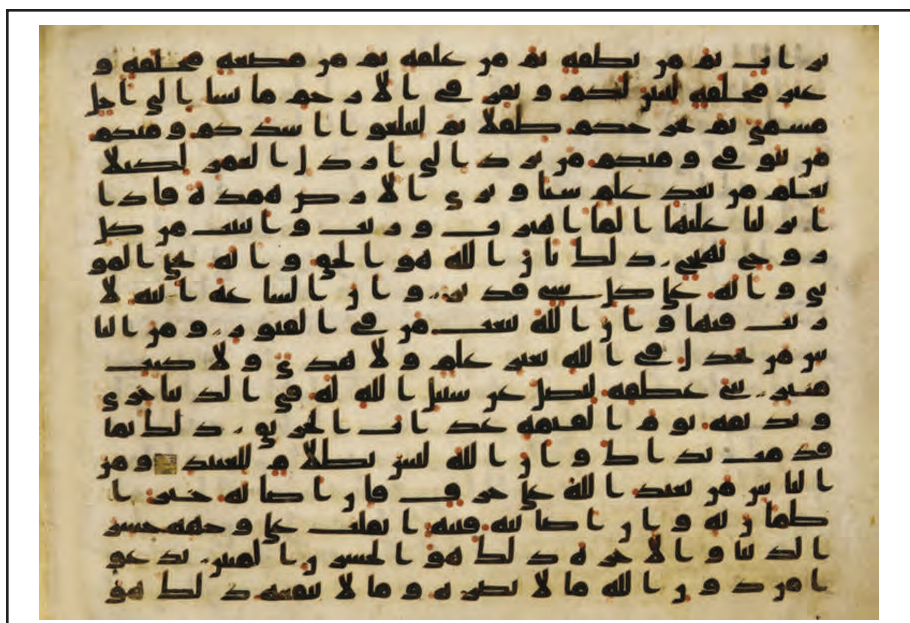 تراب ثم من نطفة ثم من علقة ثم من مضغة مخلقة و
غير مخلقة لنبين لكم ونقر في الارحم ما نشا الى اجل
مسمى ثم نخرجكم طفلا ثم لتبلغوا اشدكم ومنكم
من يتوفى ومنكم من يرد الى ارذل العمر لكيلا
يعلم من بعد علم شيا وترى الارض همدة فاذا
انزلنا عليها الما اهتزت وربت وانبتت من كل
زوج بهيج ذلك بان الله هو الحق وانه يحي المو
تى وانه على كل شي قدير وان الساعة اتية لا
ريب فيها وان الله يبعث من في القبور ومن النا
س من يجدل في الله بغير علم ولا هدى ولا كتب
منير ثني عطفه ليضل عن سبيل الله له في الدنيا خزي
ونذيقه يوم القيمة عذاب الحريق ذلك بما
قدمت يداك وان الله ليس بظلام للعبيد ومن
الناس من يعبد الله على حرف فان اصابه خير ا
طمان به وان اصابته فتنة انقلب على وجهه خسر
الدنيا والاخرة ذلك هو الخسرن المبين يدعو
ا من دون الله ما لا يضره وما لا ينفعه ذلك هو